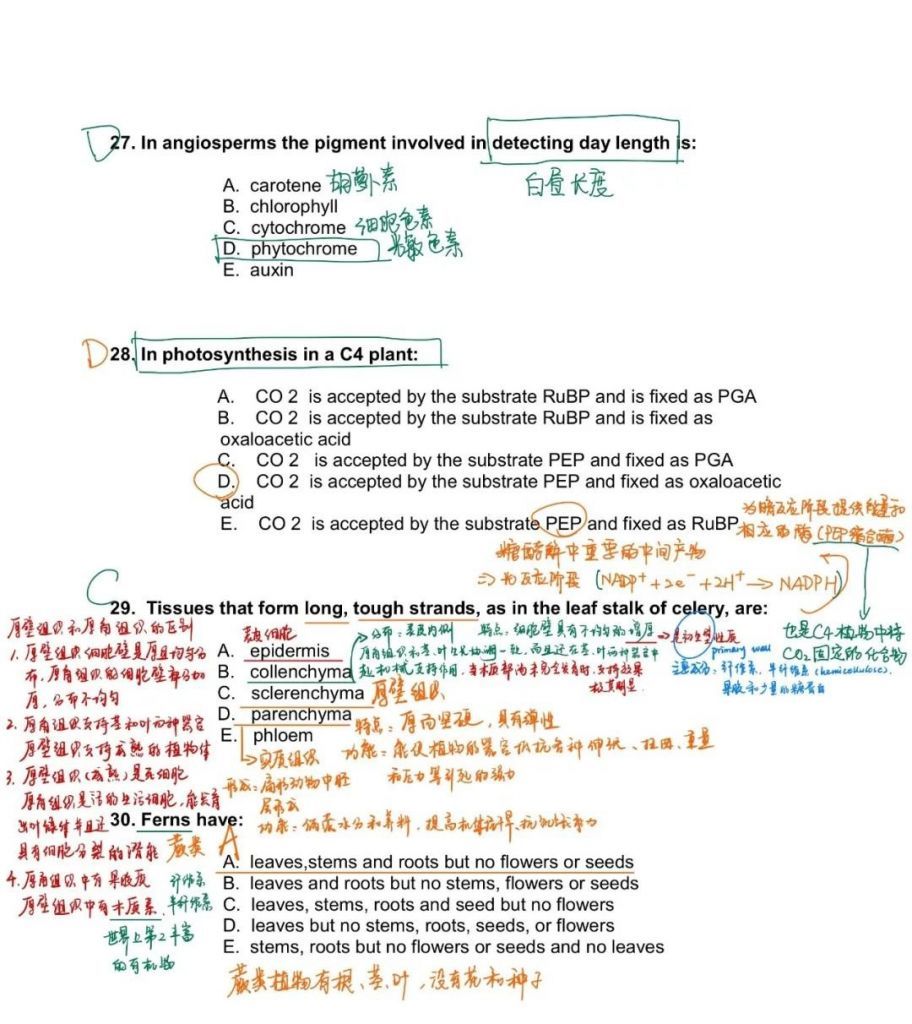 D 27. In angiosperms the pigment involved in detecting day length is:
白昼长度
A. carotene 胡萝卜素
B. chlorophyll
C. cytochrome 细胞色素
D. phytochrome 光敏色素
E. auxin
D 28. In photosynthesis in a C4 plant:
A. CO 2 is accepted by the substrate RuBP and is fixed as PGA
B. CO 2 is accepted by the substrate RuBP and is fixed as
oxaloacetic acid
C. CO 2 is accepted by the substrate PEP and fixed as PGA
D. CO 2 is accepted by the substrate PEP and fixed as oxaloacetic
acid
E. CO 2 is accepted by the substrate PEP and fixed as RuBP
为暗反应阶段提供能量和
相应的酶 (PEP羧合酶)
糖酵解中重要的中间产物
⇒ 光反应阶段 (NADP⁺+2e⁻+2H⁺→NADPH)
也是C4植物中将
CO₂固定的化合物
C 29. Tissues that form long, tough strands, as in the leaf stalk of celery, are:
表皮细胞
A. epidermis
B. collenchyma
C. sclerenchyma 厚壁组织
D. parenchyma
E. phloem
分布：表皮内侧 特点：细胞壁具有不均匀的增厚 → 是初生壁性质
primary wall
厚角组织和茎、叶
起机械支持作用
主要成分：纤维素、半纤维素 (hemicellulose)、
果胶和少量的糖蛋白
特点：厚而坚硬，具有弹性
功能：能使植物的器官能抗各种伸纸、扭曲、重量
和压力等引起的张力
实质组织
形成：扁形动物中胚
层形成
功能：储藏水分和养料，提高机体抗旱、抗饥饿能力
厚壁组织和厚角组织的区别
1. 厚壁组织细胞壁是厚且均匀分
布，厚角组织的细胞壁部分加
厚，分布不均匀
2. 厚角组织支持茎和叶两种器官
厚壁组织支持成熟的植物体
3. 厚壁组织(成熟)是死细胞
厚角组织是活的生活细胞，能长有
叶绿体并且还
具有细胞分裂的潜能
4. 厚角组织中有果胶质 纤维素
厚壁组织中有木质素 半纤维素
世界上第2丰富
的有机物
30. Ferns have:
蕨类 A
A. leaves,stems and roots but no flowers or seeds
B. leaves and roots but no stems, flowers or seeds
C. leaves, stems, roots and seed but no flowers
D. leaves but no stems, roots, seeds, or flowers
E. stems, roots but no flowers or seeds and no leaves
蕨类植物有根、茎、叶，没有花和种子